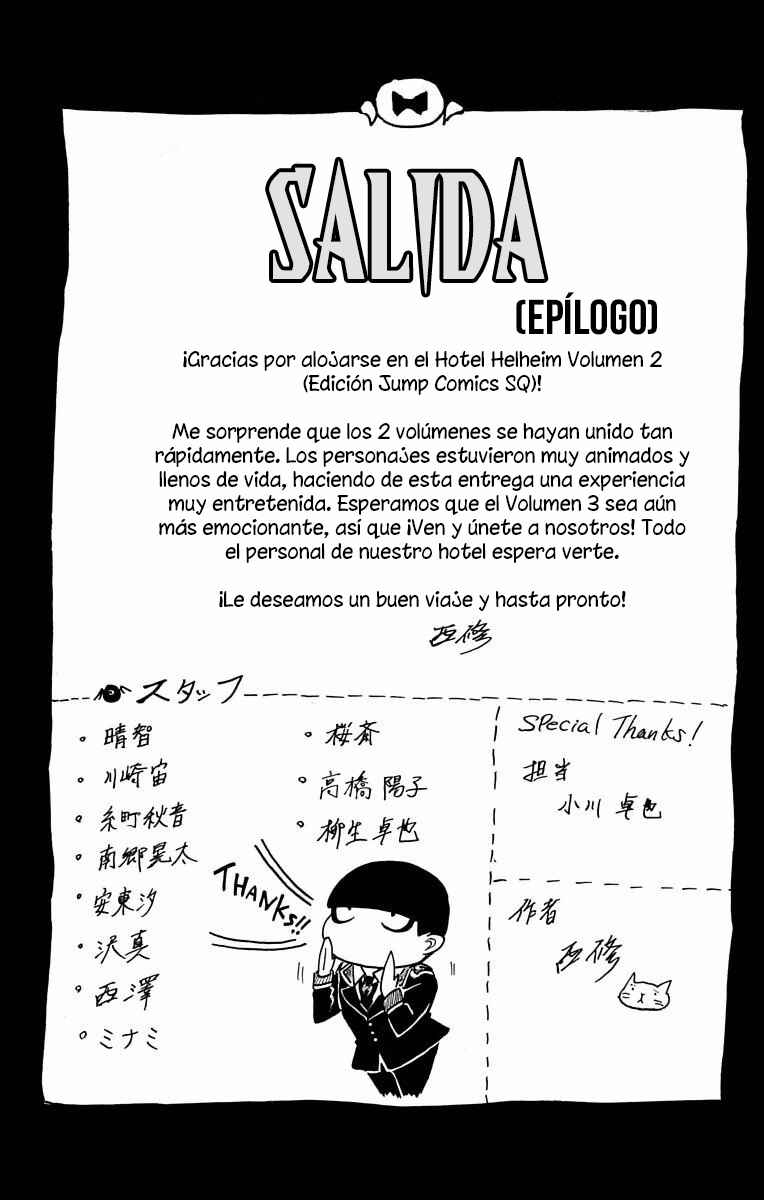 SALIDA
(EPÍLOGO)
¡Gracias por alojarse en el Hotel Helheim Volumen 2
(Edición Jump Comics SQ)!
Me sorprende que los 2 volúmenes se hayan unido tan
rápidamente. Los personajes estuvieron muy animados y
llenos de vida, haciendo de esta entrega una experiencia
muy entretenida. Esperamos que el Volumen 3 sea aún
más emocionante, así que ¡Ven y únete a nosotros! Todo
el personal de nuestro hotel espera verte.
¡Le deseamos un buen viaje y hasta pronto!
西修
スタッフ
晴智
川崎宙
糸町秋音
南郷晃太
安東汐
沢真
西澤
ミナミ
桜斎
高橋陽子
柳生卓也
THANKS!!
Special Thanks!
担当
小川卓也
作者
西修